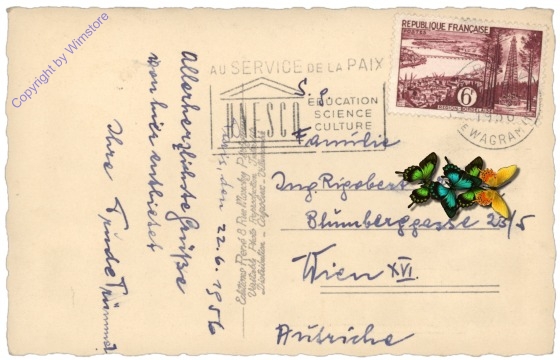 Copyright by Wimstore
REPUBLIQUE FRANÇAISE
POSTES
6F
AU SERVICE DE LA PAIX
UNESCO
EDUCATION
SCIENCE
CULTURE
WAGRAM
Paris, den 22.6.1956
Allerherzlichste Grüße
von hier entbietet
Ihre Trude
S. g.
Familie
Ing. Rigobert
Blumberggasse 23/5
Wien XVI.
Autriche